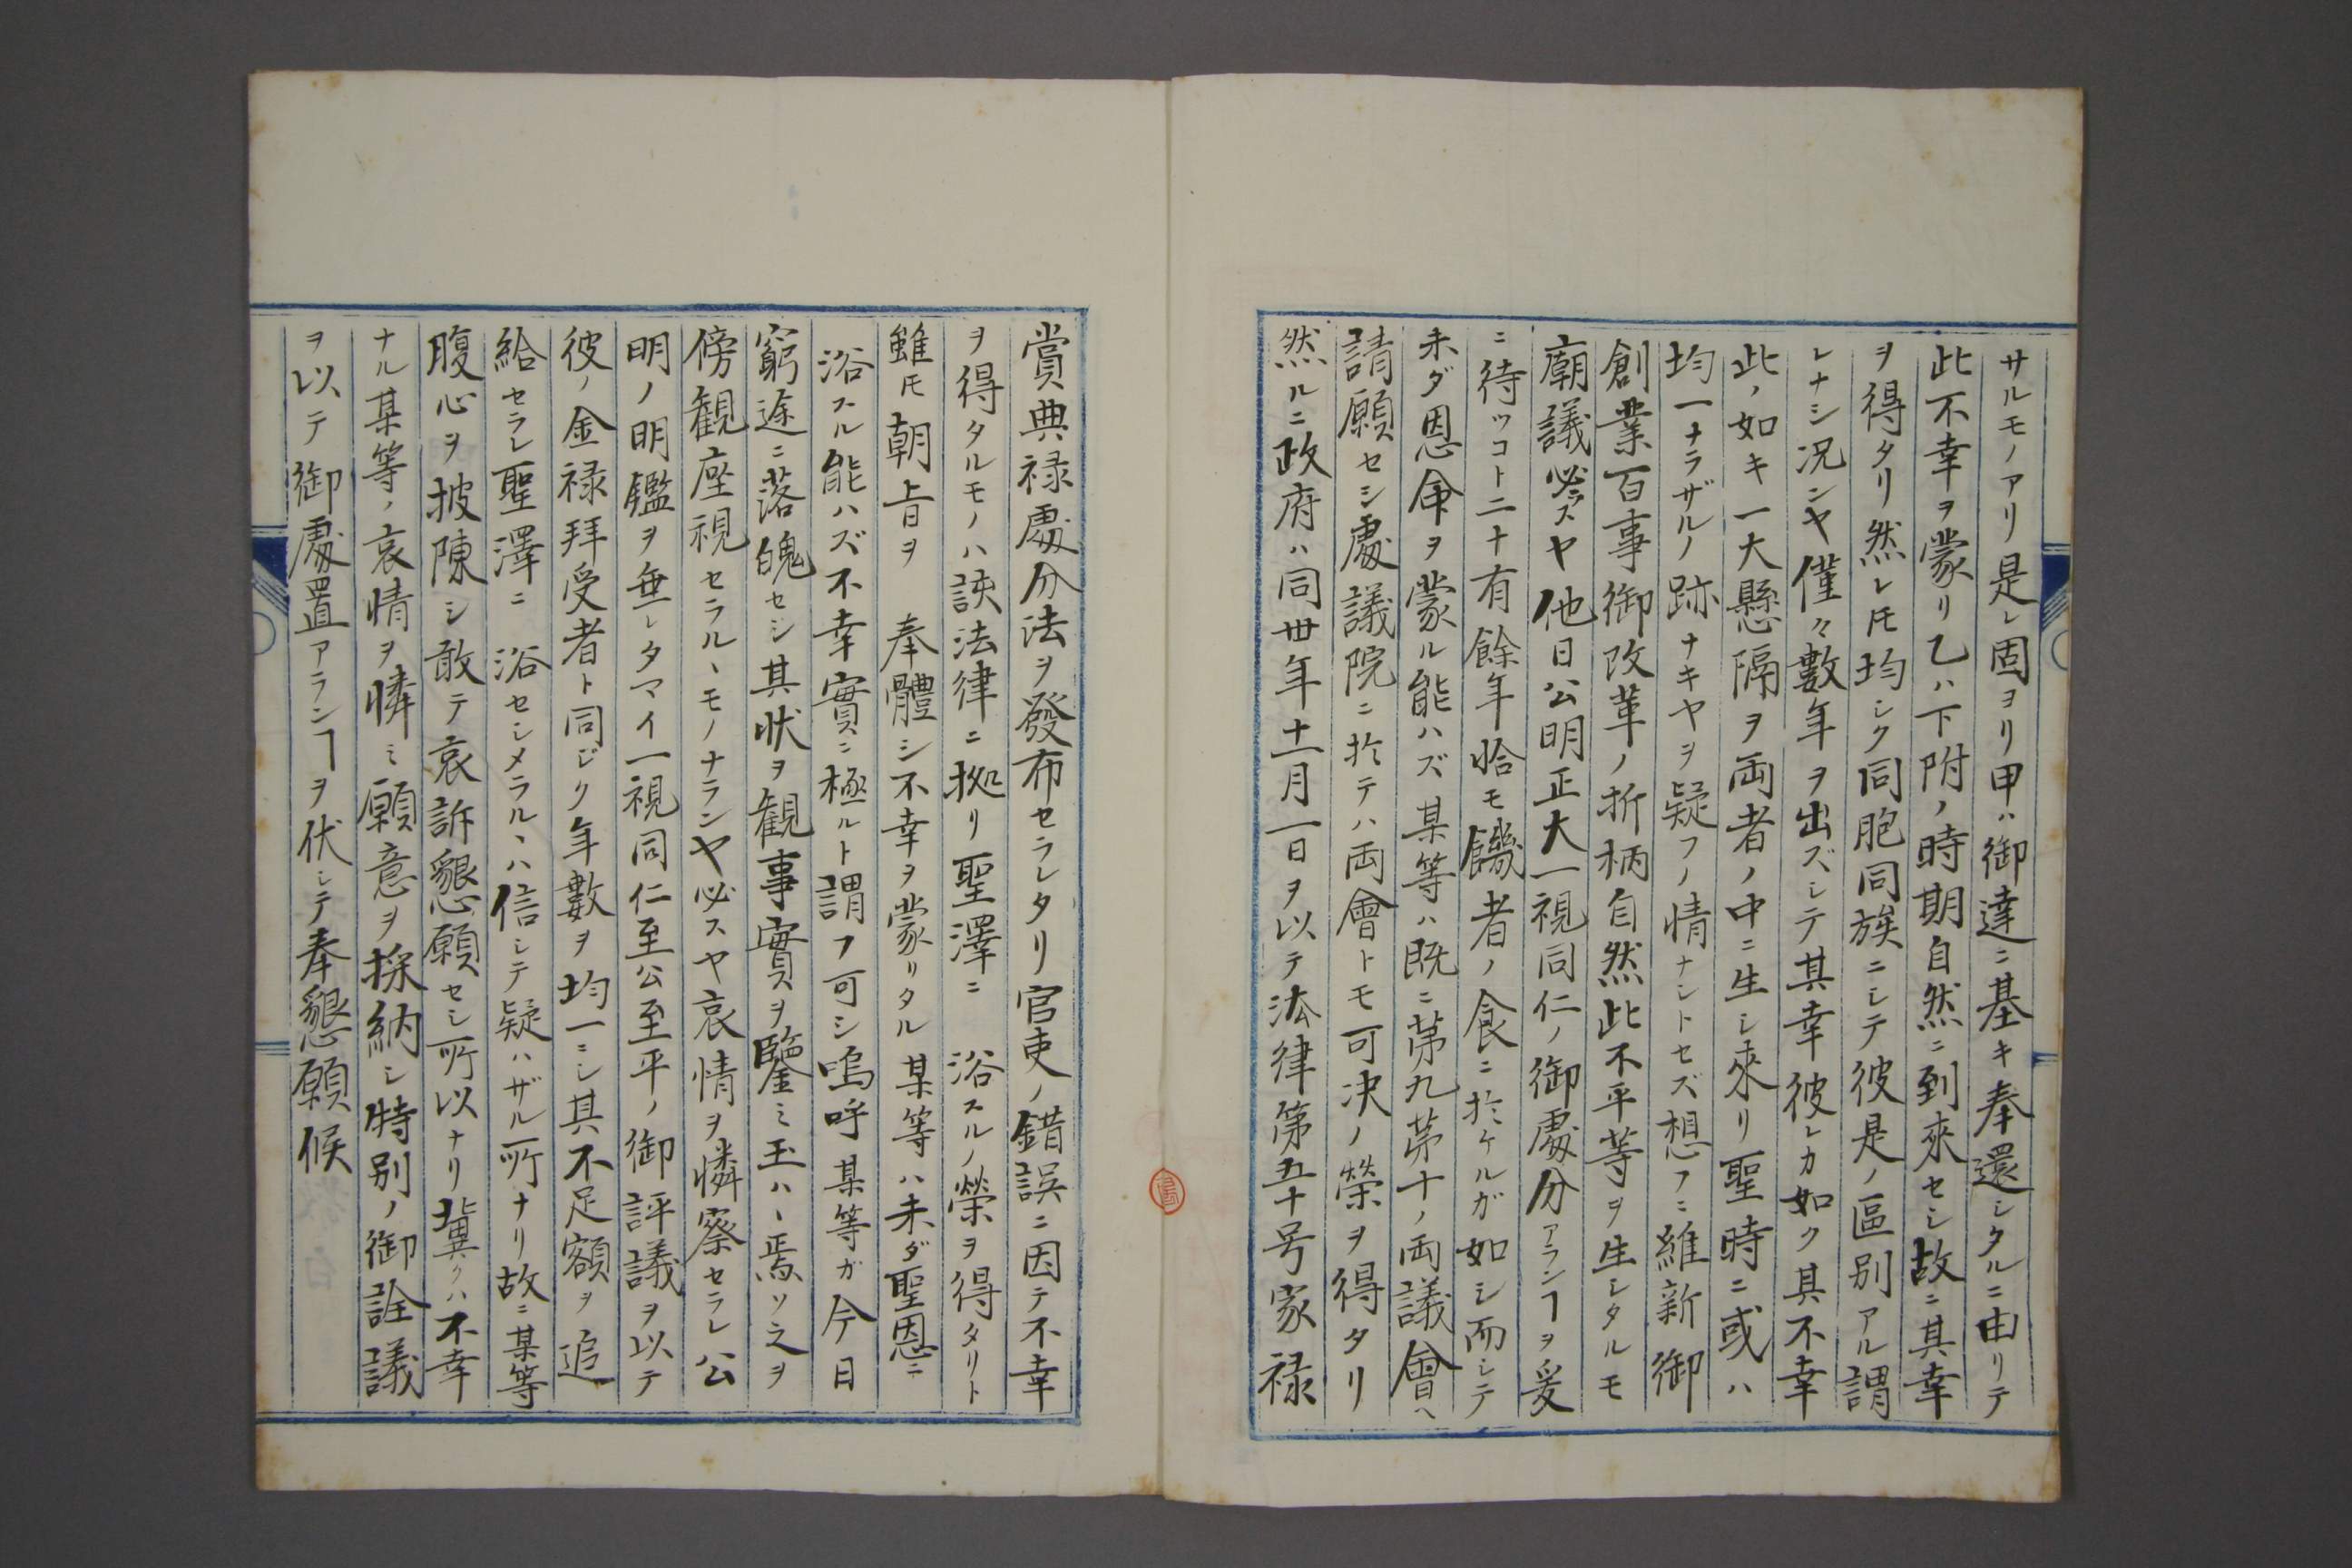 サルモノアリ是レ固ヨリ甲ハ御達ニ基キ奉還シタルニ由リテ
此不幸ヲ蒙リ乙ハ下附ノ時期自然ニ到来セシ故ニ其幸
ヲ得タリ然レ𪜈均シク同胞同族ニシテ彼是ノ區別アル謂
レナシ况ンヤ僅々數年ヲ出ズシテ其幸彼レカ如ク其不幸
此ノ如キ一大懸隔ヲ両者ノ中ニ生シ來リ聖時ニ或ハ
均一ナラザルノ跡ナキヤヲ疑フノ情ナシトセズ想フニ維新御
創業百事御改革ノ折柄自然此不平等ヲ生シタルモ
廟議必ズヤ他日公明正大一視同仁ノ御處分アランヿヲ爰
ニ待ツコト二十有餘年恰モ饑者ノ食ニ於ケルガ如シ而シテ
未ダ恩命ヲ蒙ル能ハズ某等ハ既ニ苐九苐十ノ両議會ヘ
請願セシ處議院ニ於テハ両會トモ可決ノ榮ヲ得タリ
然ルニ政府ハ同丗年十一月一日ヲ以テ法律第五十号家禄
賞典禄處分法ヲ發布セラレタリ官吏ノ錯誤ニ因テ不幸
ヲ得タルモノハ該法律ニ拠リ聖澤ニ 浴スルノ榮ヲ得タリト
雖𪜈朝旨ヲ 奉體シ不幸ヲ蒙リタル某等ハ未ダ聖恩ニ
浴スル能ハズ不幸實ニ極ルト謂フ可シ嗚呼某等ガ今日
窮途ニ落魄セシ其状ヲ観事實ヲ鑒ミ玉ハヽ焉ソ之ヲ
傍観座視セラルヽモノナランヤ必スヤ哀情ヲ憐察セラレ公
明ノ明鑑ヲ垂レタマイ一視同仁至公至平ノ御評議ヲ以テ
彼ノ金禄拜受者ト同ジク年數ヲ均一ニシ其不足額ヲ追
給セラレ聖澤ニ 浴セシメラルヽハ信シテ疑ハザル所ナリ故ニ某等
腹心ヲ披陳シ敢テ哀訴懇願セシ所以ナリ冀クハ不幸
ナル某等ノ哀情ヲ憐ミ願意ヲ採納シ特別ノ御詮議
ヲ以テ御處置アランヿヲ伏シテ奉懇願候